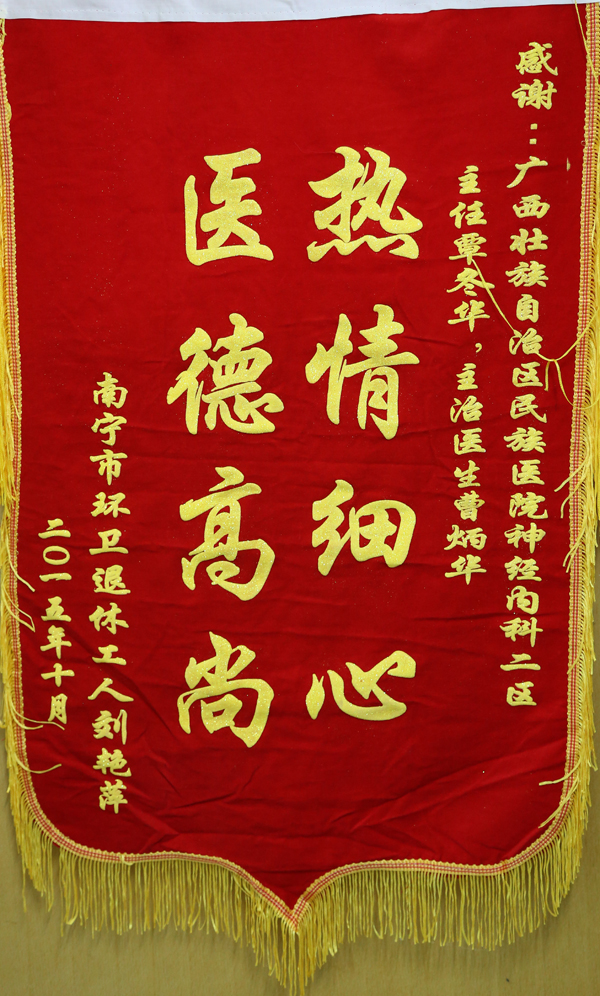 感谢：广西壮族自治区民族医院神经内科二区
主任覃冬华，主治医生曹炳华
热情细心
医德高尚
南宁市环卫退休工人刘艳萍
二〇一五年十月